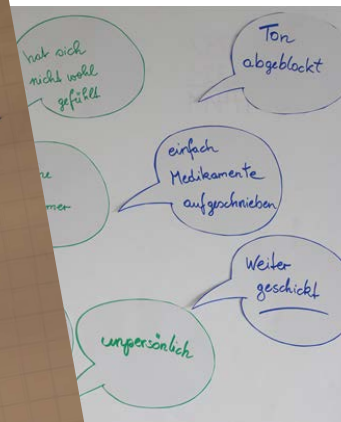 hat sich
nicht wohl
gefühlt
Ton
abgeblockt
einfach
Medikamente
aufgeschrieben
Weiter
geschickt
unpersönlich